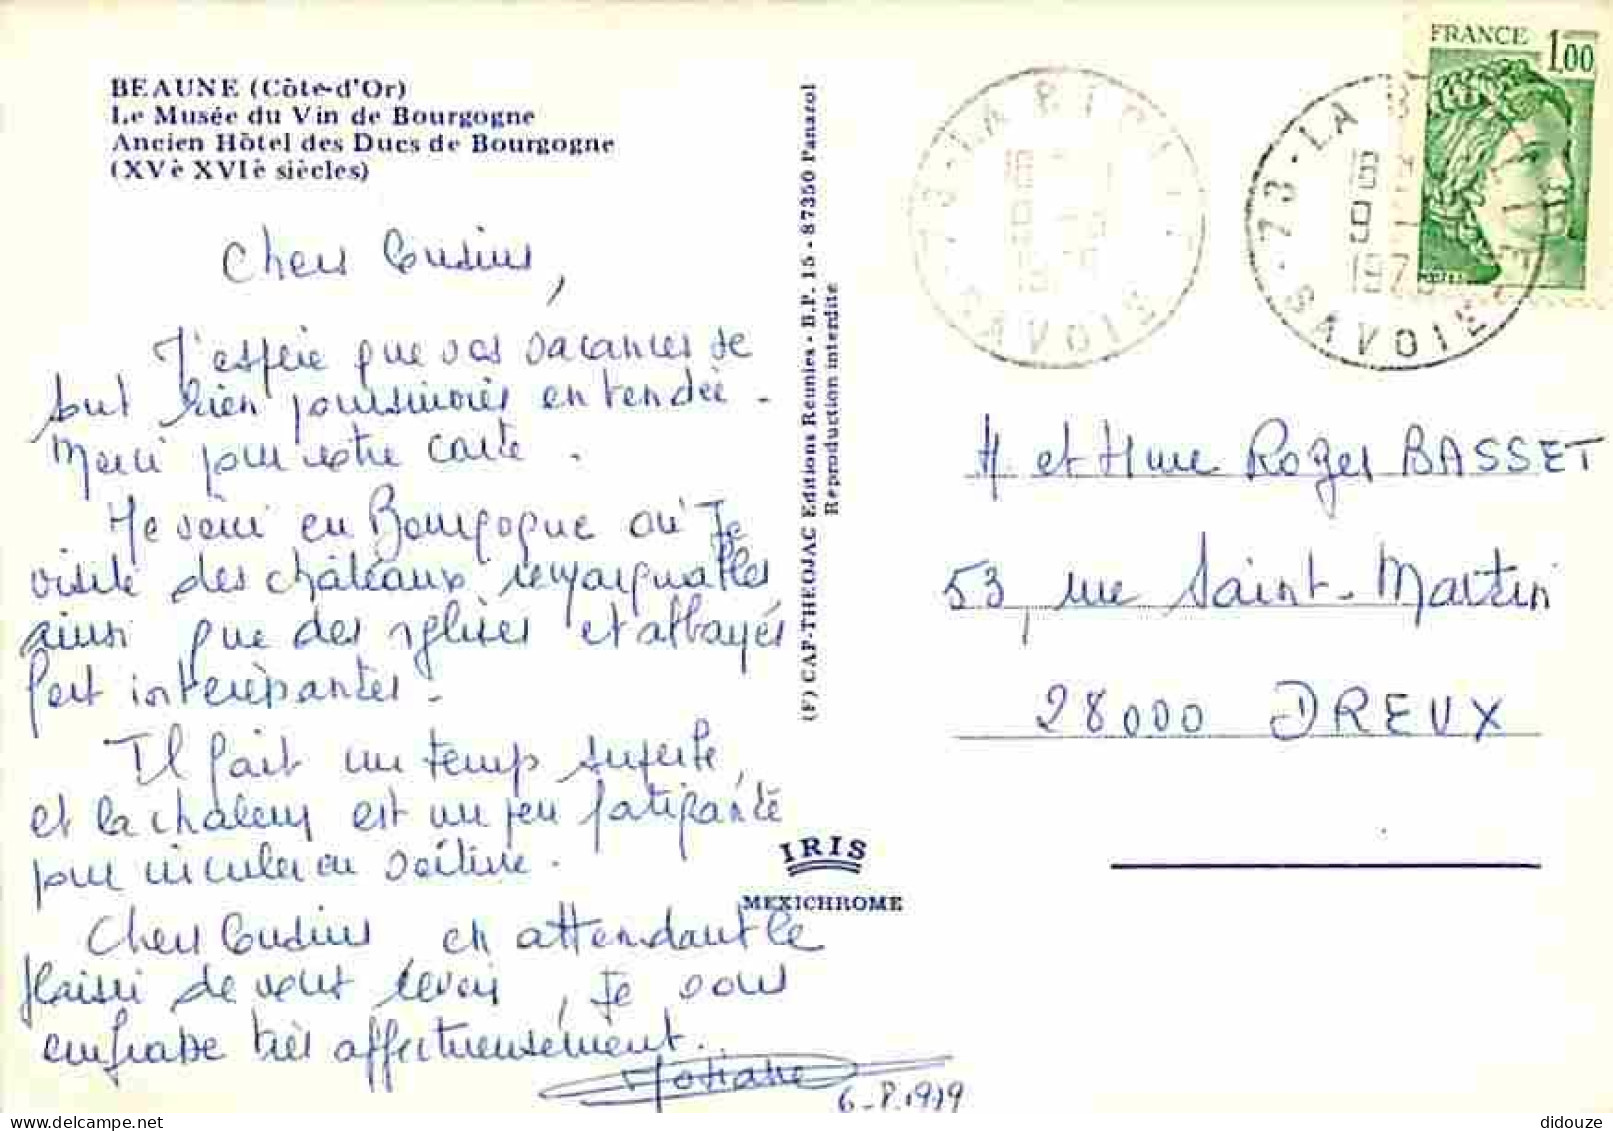 BEAUNE (Côte-d'Or)
Le Musée du Vin de Bourgogne
Ancien Hôtel des Ducs de Bourgogne
(XVè XVIè siècles)
Chers Cousins,
J'espère que vos vacances se
sont bien poursuivies en Vendée.
Merci pour votre carte.
Me voici en Bourgogne où Je
visite des châteaux remarquables
ainsi que des églises et abbayes
fort intéressantes.
Il fait un temps superbe,
et la chaleur est un peu fatigante
pour circuler en voiture.
Chers Cousins en attendant le
plaisir de vous revoir, Je vous
embrasse très affectueusement.
Josiane
6-8.1979
(F) CAP-THEOJAC Editions Réunies - B.P. 15 - 87350 Panazol
Reproduction interdite
IRIS
MEXICHROME
FRANCE 1,00
73 - LA
SAVOIE
73 - LA
SAVOIE
M et Mme Roger BASSET
53, rue Saint-Martin
28000 DREUX
didouze